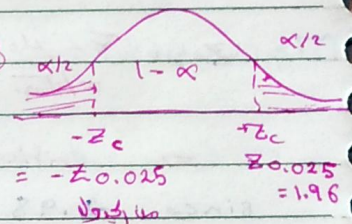 α/2 1-α α/2
-Zc +Zc
= -Z0.025 Z0.025
=1.96